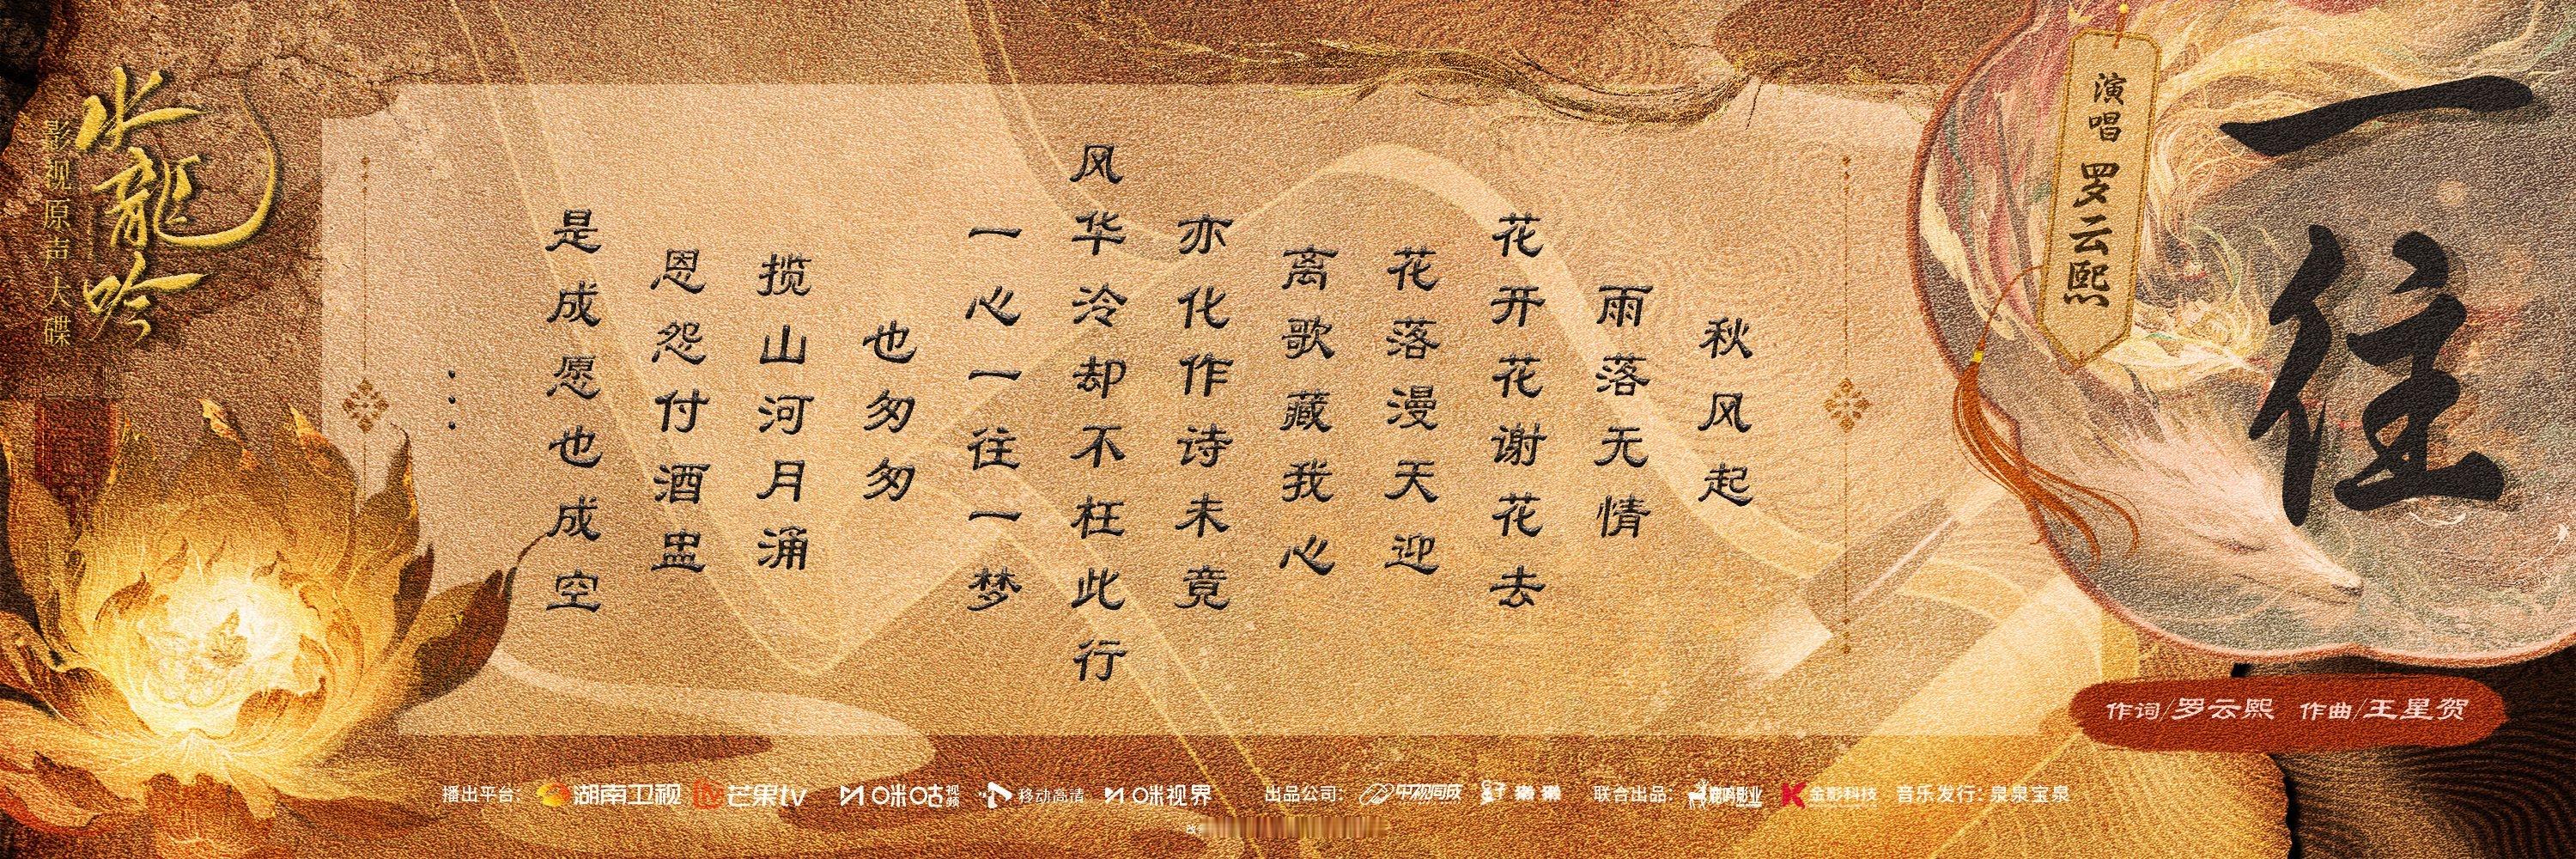 一往
演唱 罗云熙
作词/罗云熙 作曲/王星贺
秋风起
雨落无情
花开花谢花去
花落漫天迎
离歌藏我心
亦化作诗未竟
风华泠却不枉此行
一心一往一梦
也匆匆
揽山河月涌
恩怨付酒盅
是成愿也成空
...
水龍吟
影视原声大碟
播出平台: 湖南卫视 芒果tv 咪咕视频 移动高清 咪视界 出品公司: 中视同成 联合出品: 金影科技 音乐发行: 泉泉宝泉